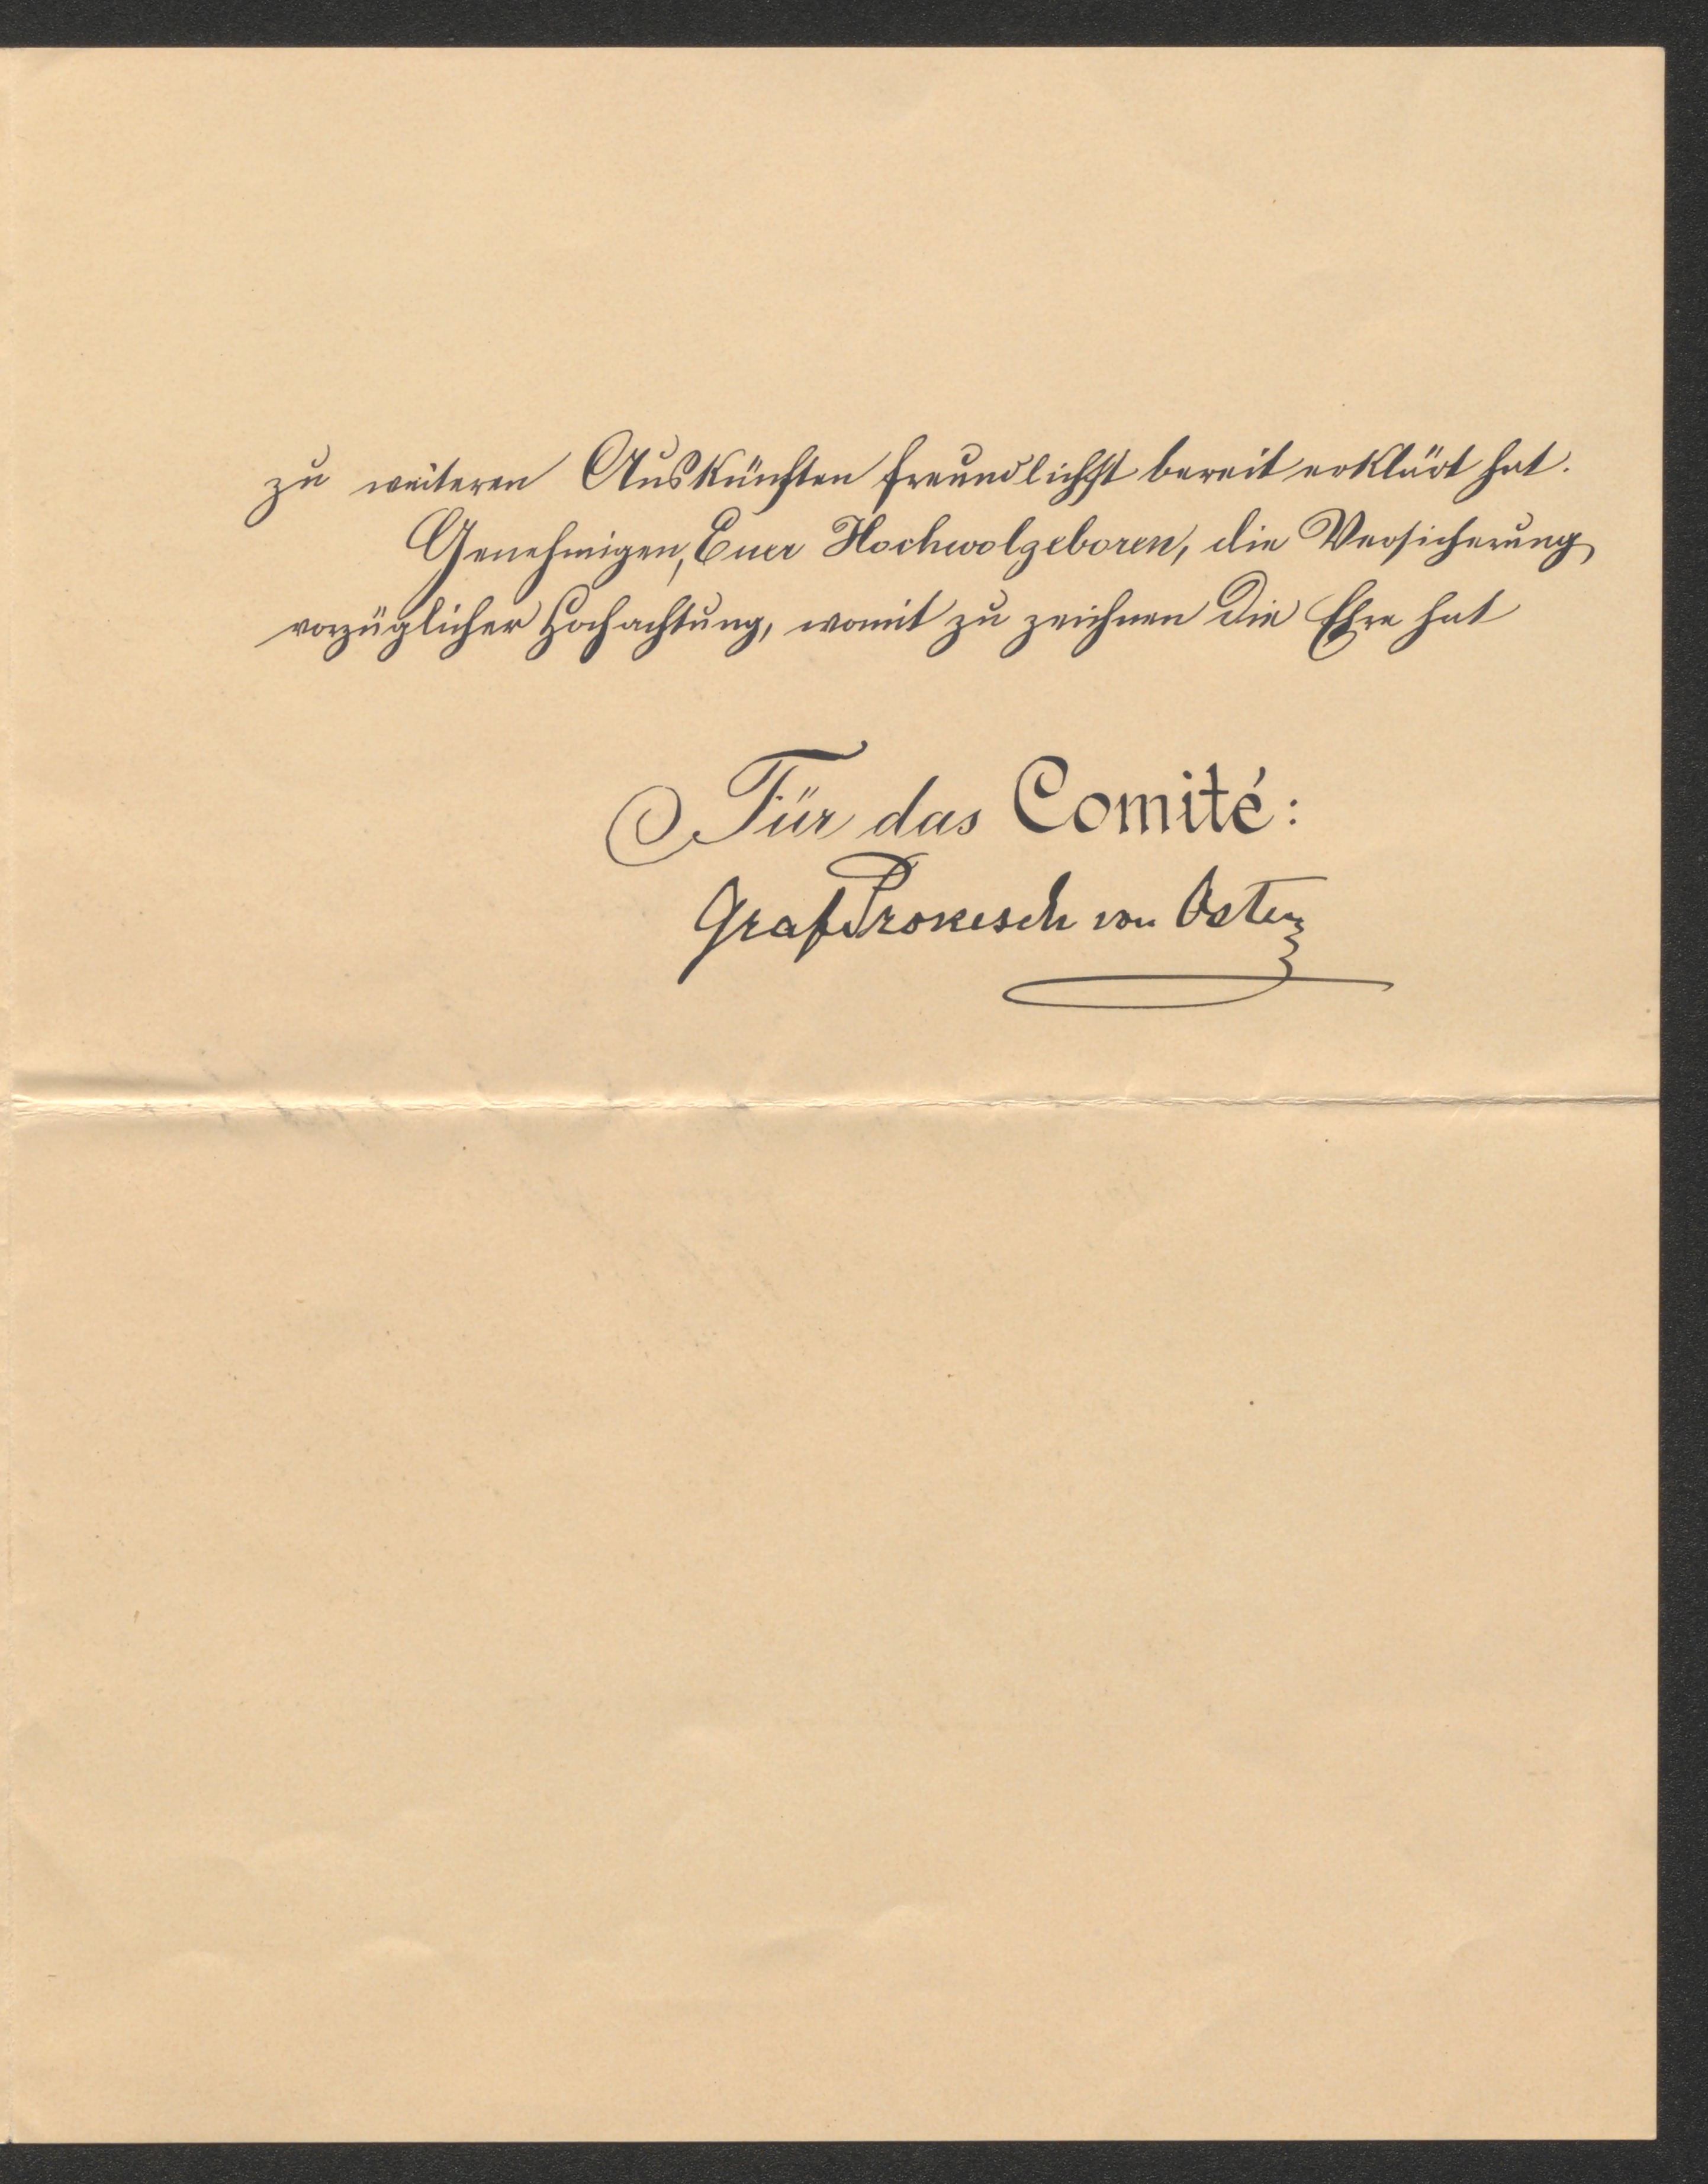 zu weiteren Auskünften freundlichst bereit erklärt hat.
Genehmigen, Euer Hochwolgeboren, die Versicherung
vorzüglicher Hochachtung, womit zu zeichnen die Ehre hat
Für das Comité:
Graf Prokesch von Osten